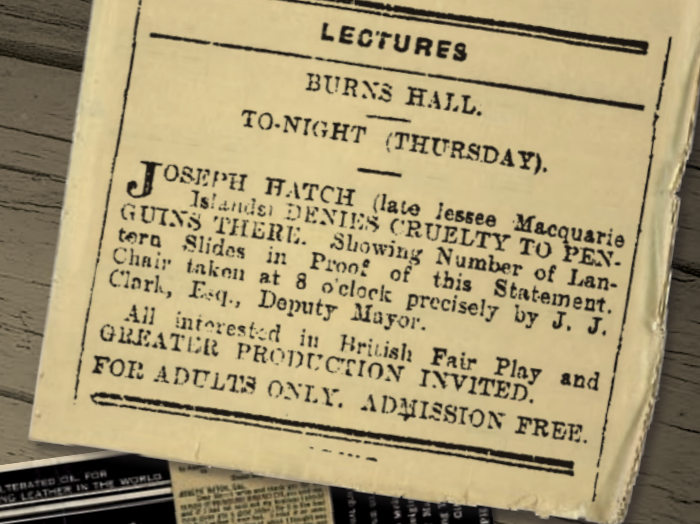 LECTURES
BURNS HALL.
TO-NIGHT (THURSDAY).
JOSEPH HATCH (late lessee Macquarie
Islands) DENIES CRUELTY TO PEN-
GUINS THERE. Showing Number of Lan-
tern Slides in Proof of this Statement.
Chair taken at 8 o'clock precisely by J. J.
Clark, Esq., Deputy Mayor.
All interested in British Fair Play and
GREATER PRODUCTION INVITED.
FOR ADULTS ONLY. ADMISSION FREE.
LTERATED OIL, FOR
NG LEATHER IN THE WORLD